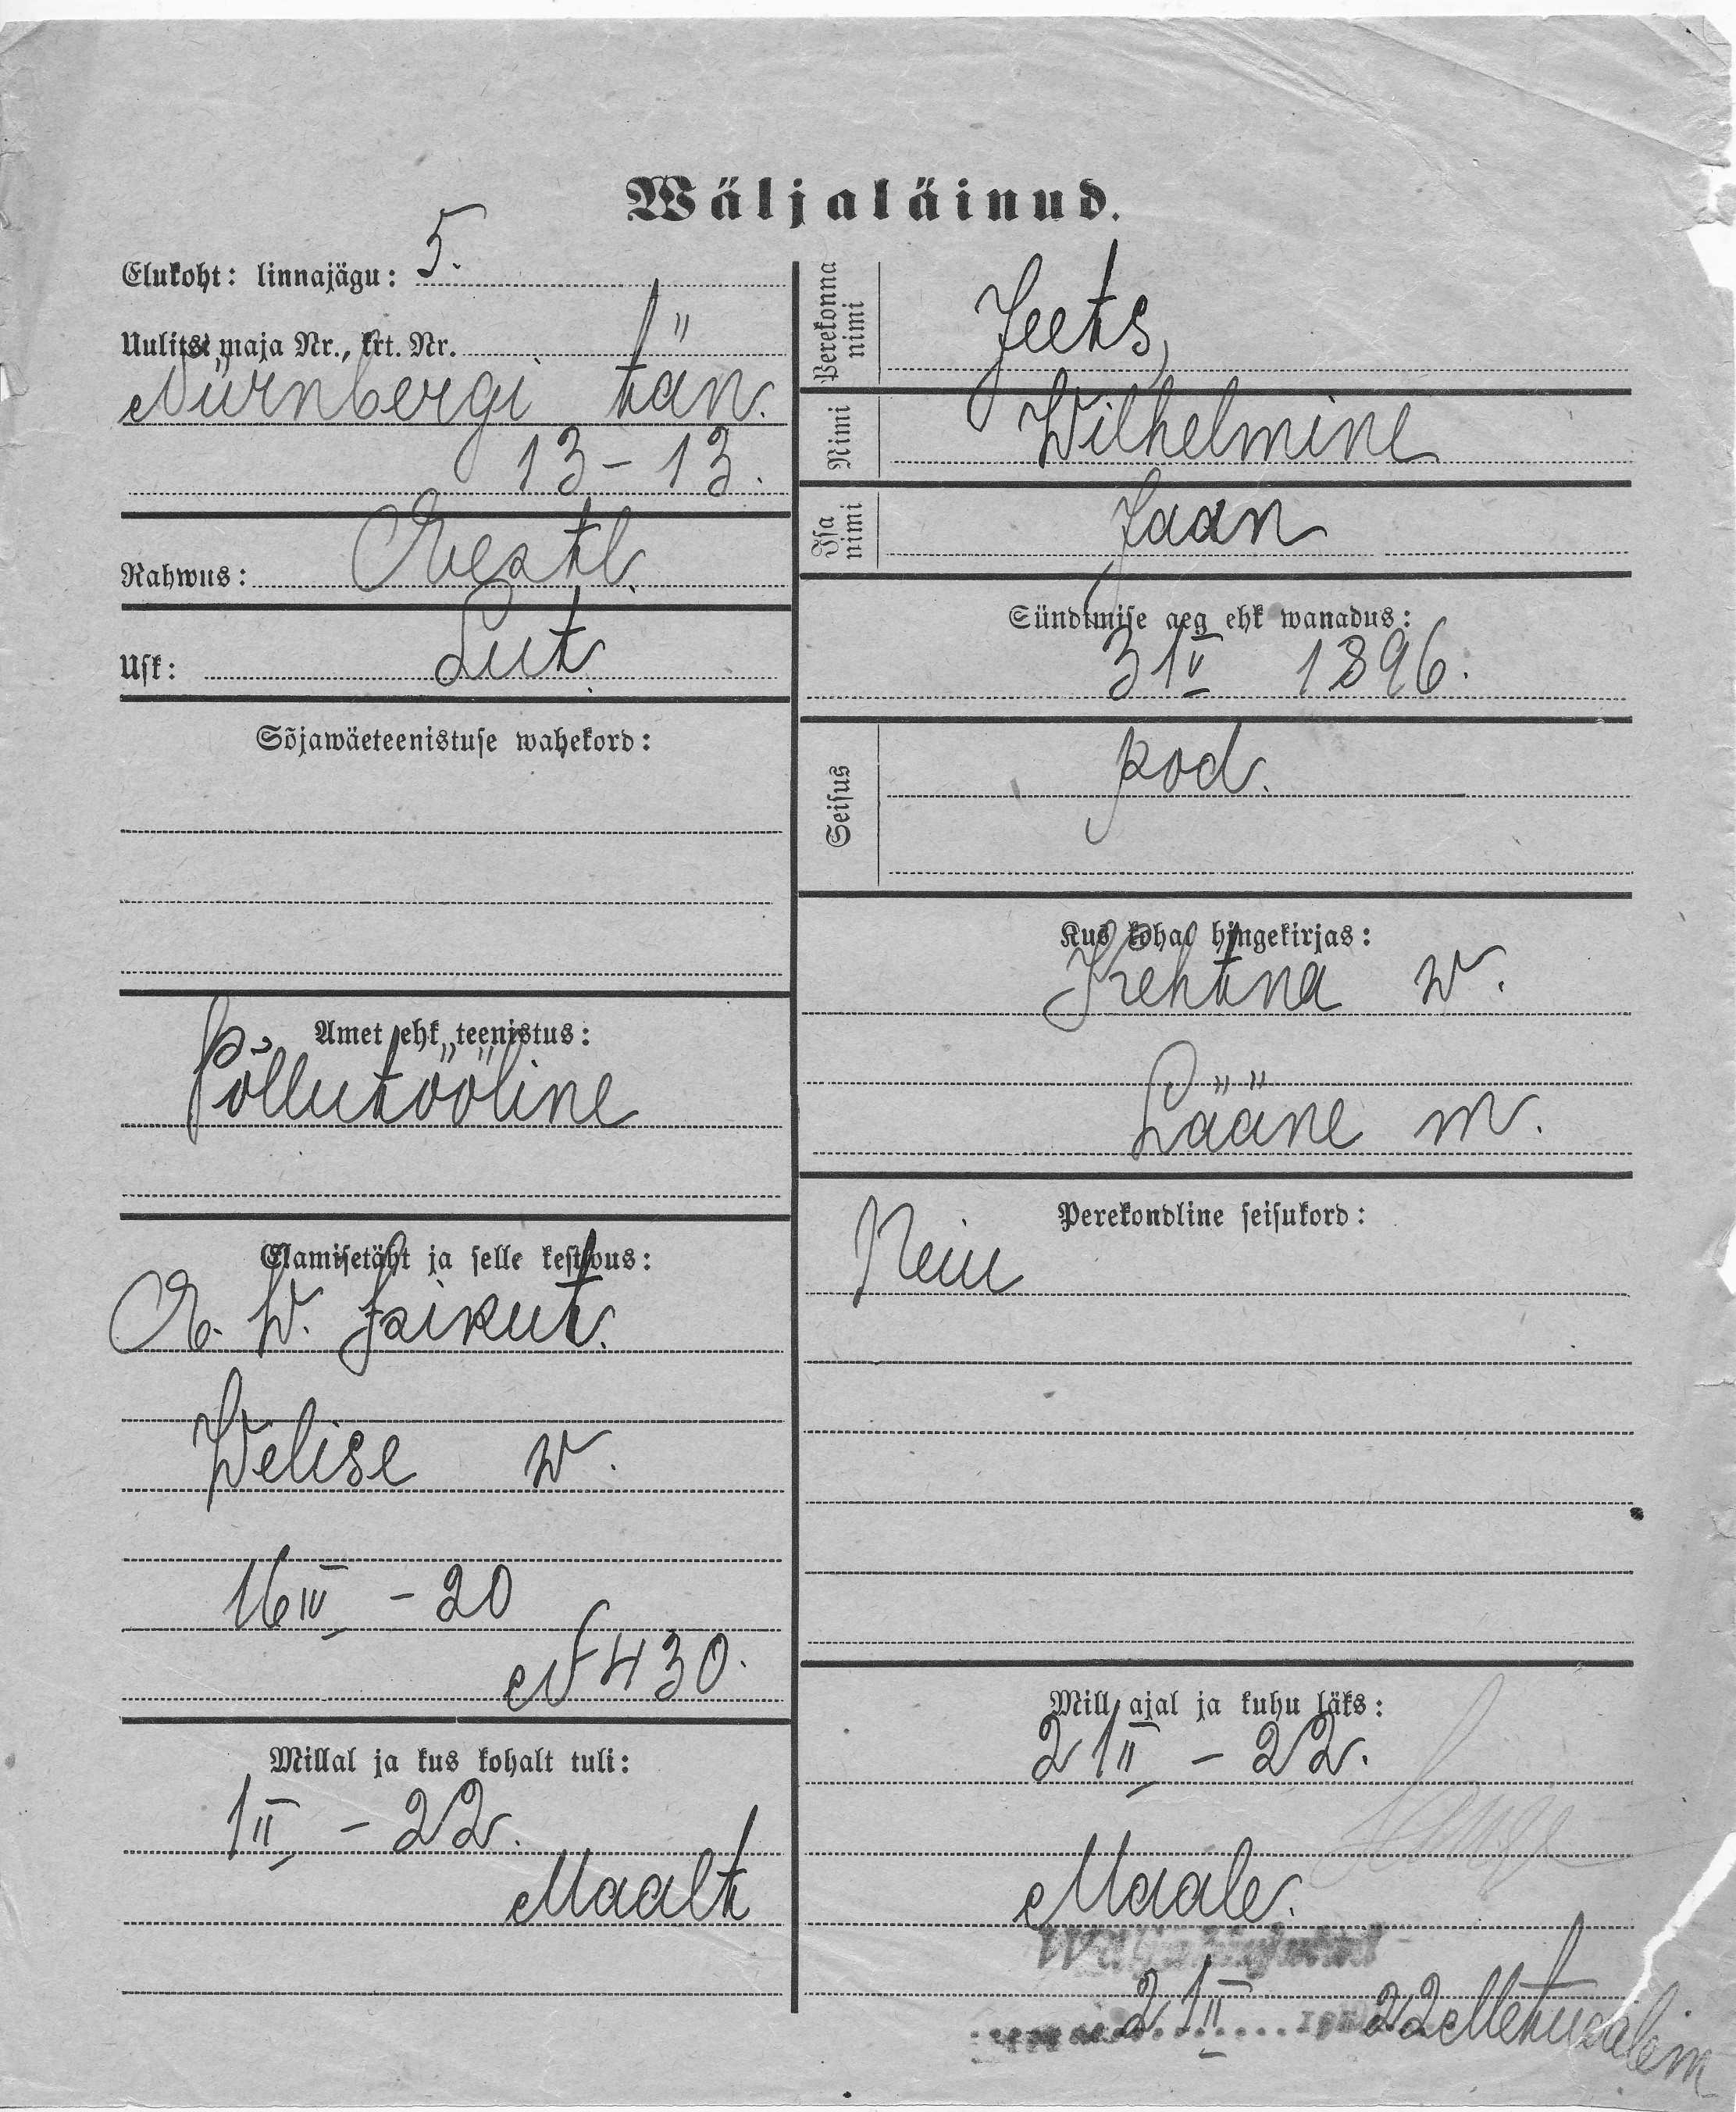 Wäljaläinud.
Elukoht: linnajägu: 5.
Uulits: maja Nr., krt. Nr.
Nürnbergi tän.
13 - 13.
Rahwus: Eestl.
Usk: Lut.
Sõjawäeteenistuse wahekord:
Amet ehk teenistus:
Põllutööline
Elamisetäht ja selle kestwus:
E. W. Isikut.
Welise w.
16 IV - 20
N 430.
Millal ja kus kohalt tuli:
1 II - 22.
Maalt
Perekonna nimi Jeets,
Nimi Wilhelmine
Isa nimi Jaan
Sündimise aeg ehk wanadus:
31 V 1896.
Seisus kod.
Kus kohal hingekirjas:
Kehtna w.
Lääne m.
Perekondline seisukord:
Neiu
Mill ajal ja kuhu läks:
21 II - 22.
Maale.
21 II 22